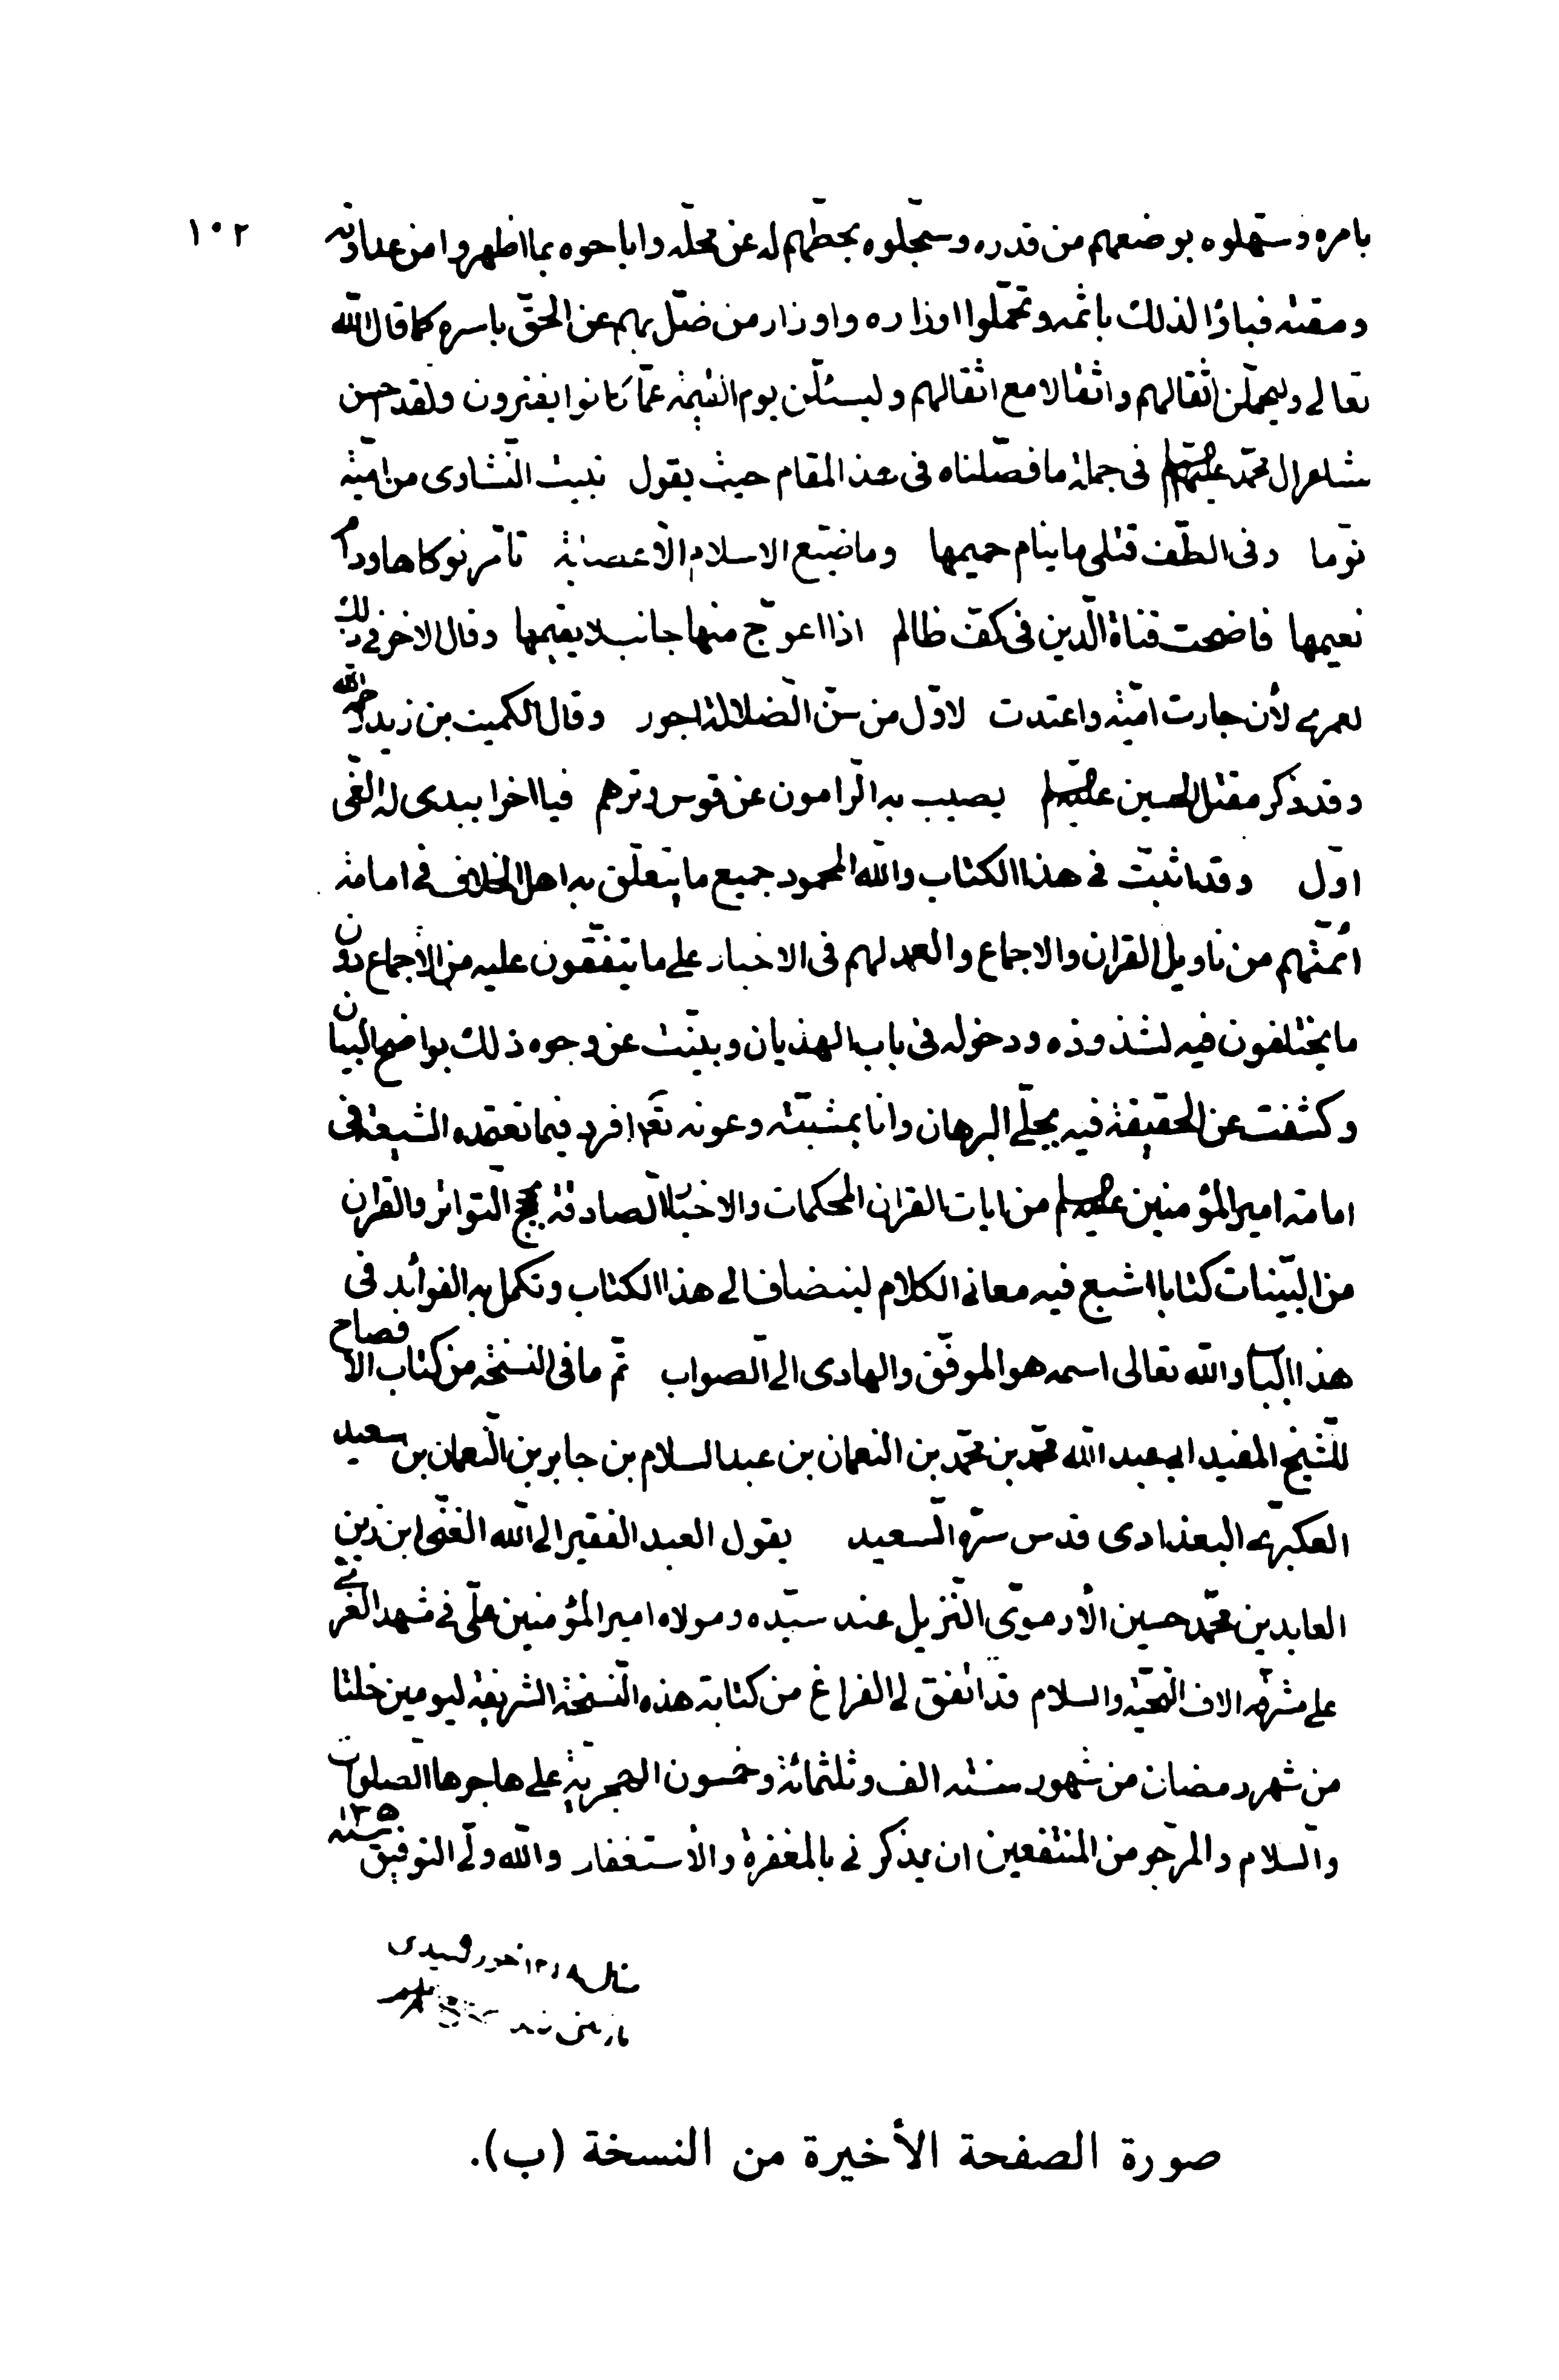 ١٠٢
بامره وسهّلوه بوضعهم من قدره وسجّلوه بحطّهم له عن محلّه واباحوه بما اظهروا من عداوته
ومقته فباؤا لذلك باثمه وتحمّلوا اوزاره واوزار من ضلّ بهم عن الحقّ باسره كما قال اللّه
تعالى وليحملن اثقالهم واثقالا مع اثقالهم وليسئلن يوم القيمة عمّا كانوا يفترون ولقد احسن
شاعر ال محمّد عليهم السلم فى جملة ما فصّلناه فى هذا المقام حيث يقول تبيت النّشاوى من اميّة
نوّما وفى الطّف قتلى ما ينام حميمها وما ضيّع الاسلام الّا عصابة تامّر نوكاها ودام
نعيمها فاضحت قناة الّدين فى كفّ ظالم اذا اعوجّ منها جانب لا يقيمها وقال الاخر فى ذلك
لعمرى لأن جارت اميّة واعتدت لاوّل من سنّ الّضلالة اجور وقال الكميت بن زيد رحمه اللّه
وقد ذكر مقتل الحسين عليه السلم يصيب به الّرامون عن قوس وترهم فيا اخرا يبدى له الغّى
اوّل وقد اثبتّ فى هذا الكتاب واللّه المحمود جميع ما يتعلّق به اهل الخلاف فى امامة
ائمّتهم من تاويل القران والاجماع والعمد لهم فى الاخبار على ما يتفقّون عليه من الاجماع دون
ما يختلفون فيه لشذوذه ودخوله فى باب الهذيان وبيّنت عن وجوه ذلك بواضح البيان
وكشفت عن الحقيقة فيه بجلّى البرهان وانا بمشيّته وعونه تعالى افرد فيما تعتمده الشيعة فى
امامة امير المؤمنين عليه السلم من ايات القران المحكمات والاخبار الّصادقة بحجج التّواتر والقران
من البّينات كتابا اشبع فيه معانى الكلام لينضاف الى هذا الكتاب وتكمل به الفوائد فى
هذا الباب واللّه تعالى اسمه هو الموفّق والهادى الى الّصواب تمّ ما فى النسخة من كتاب الافصاح
للّشيخ المفيد ابى عبد اللّه محمّد بن محمّد بن النعمان بن عبد السلام بن جابر بن الّنعمان بن سعيد
العكبرى البغدادى قدس سرّه الّسعيد يقول العبد الفقير الى اللّه الغنّى ابن زين
العابدين محمّد حسين الأرموّى الّنزيل عند سيّده ومولاه امير المؤمنين علّى فى مشهد الغرّى
على مشرّفه الاف التّحيّة والسلام قد اتّفق لى الفراغ من كتابة هذه الّنسخة الشريفة ليومين خلتا
من شهر رمضان من شهور سنة الف وثلثمائة وخمسون الهجريّة على هاجرها الّصلوات
والّسلام والمرجو من المنتفعين ان يذكرنى بالمغفرة والأستغفار واللّه ولّى التوفيق سنة ١٣٥
صورة الصفحة الأخيرة من النسخة (ب).